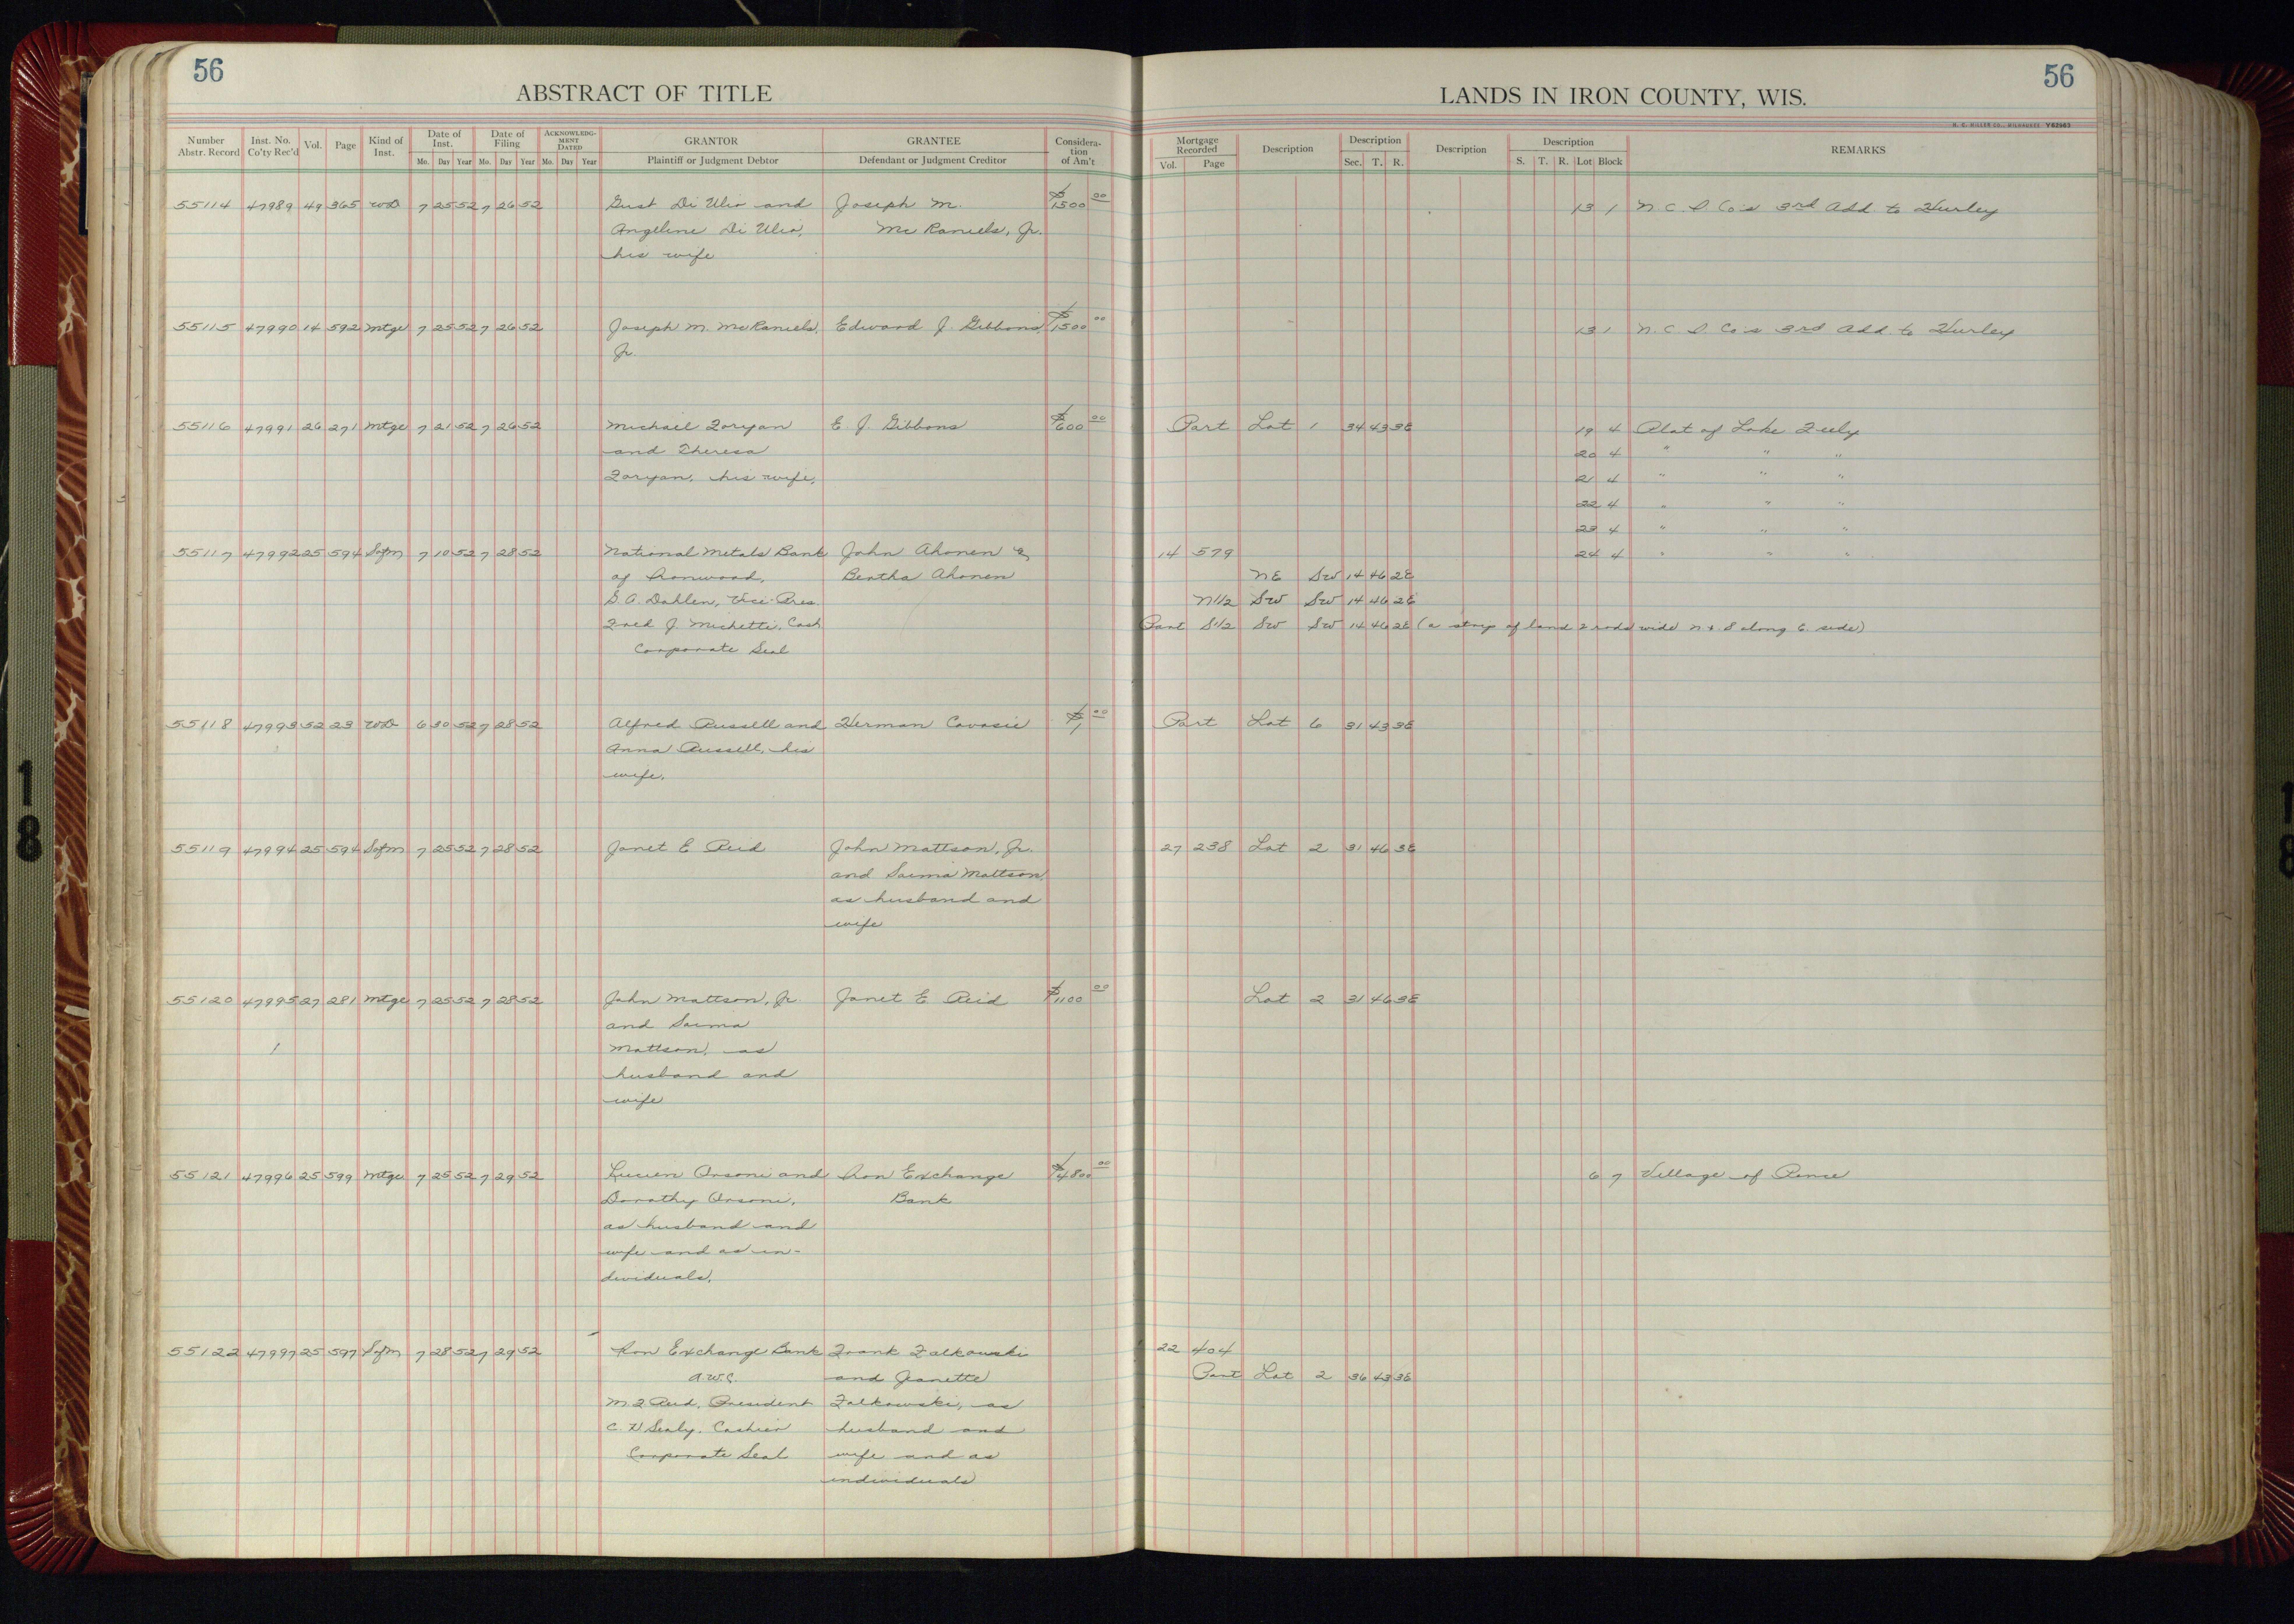 56
ABSTRACT OF TITLE
LANDS IN IRON COUNTY, WIS.
56
H. C. MILLER CO., MILWAUKEE Y62963
Number Abstr. Record Inst. No. Co'ty Rec'd Vol. Page Kind of Inst. Date of Inst. Mo. Day Year Date of Filing Mo. Day Year ACKNOWLEDGMENT DATED Mo. Day Year GRANTOR Plaintiff or Judgment Debtor GRANTEE Defendant or Judgment Creditor Consideration of Am't Mortgage Recorded Vol. Page Description Description Sec. T. R. Description Description S. T. R. Lot Block REMARKS
55114 47989 49 365 WD 7 25 52 7 26 52 Gust Di Ulio and Joseph M. $1500 00 13 1 N C I Co's 3rd Add to Hurley
Angeline Di Ulio, Mc Raniels, Jr.
his wife
55115 47990 14 592 Mtge 7 25 52 7 26 52 Joseph M. McRaniels, Edward J. Gibbons $1500 00 13 1 N. C I Co's 3rd Add. to Hurley
Jr.
55116 47991 26 271 Mtge 7 21 52 7 26 52 Michael Zoryan E. J. Gibbons $600 00 Part Lot 1 34 43 3E 19 4 Plat of Lake
and Theresa 20 4 " " "
Zoryan, his wife, 21 4 " " "
22 4 " " "
23 4 " " "
55117 47992 25 594 Sofm 7 10 52 7 28 52 National Metals Bank John Ahonen & 14 579 24 4 " " "
of Ironwood, Bertha Ahonen NE SW 14 46 2E
G. A. Dahlen, Vice-Pres. N1/2 SW SW 14 46 2E
Fred J. Michetti, Cash Part S1/2 SW SW 14 46 2E (a strip of land 2 rods wide N & S along E. side)
Corporate Seal
55118 47993 52 23 WD 6 30 52 7 28 52 Alfred Russell and Herman Cavosie $1 00 Part Lot 6 31 43 3E
Anna Russell, his
wife.
55119 47994 25 594 Sofm 7 25 52 7 28 52 Janet E Reid John Mattson, Jr. 27 238 Lot 2 31 46 3E
and Saima Mattson,
as husband and
wife
55120 47995 27 281 Mtge 7 25 52 7 28 52 John Mattson, Jr. Janet E. Reid $1100 00 Lot 2 31 46 3E
and Saima
Mattson, as
husband and
wife
55121 47996 25 599 Mtge 7 25 52 7 29 52 Lucien Orsoni and Iron Exchange $4800 00 6 7 Village of Pence
Dorothy Orsoni, Bank
as husband and
wife and as in-
dividuals.
55122 47997 25 597 Sofm 7 28 52 7 29 52 Iron Exchange Bank Frank Falkowski 22 404
A.W.C. and Jeanette Part Lot 2 36 43 3E
M. J. Reid, President Falkowski, as
C. H Sealy, Cashier husband and
Corporate Seal wife and as
individuals
18